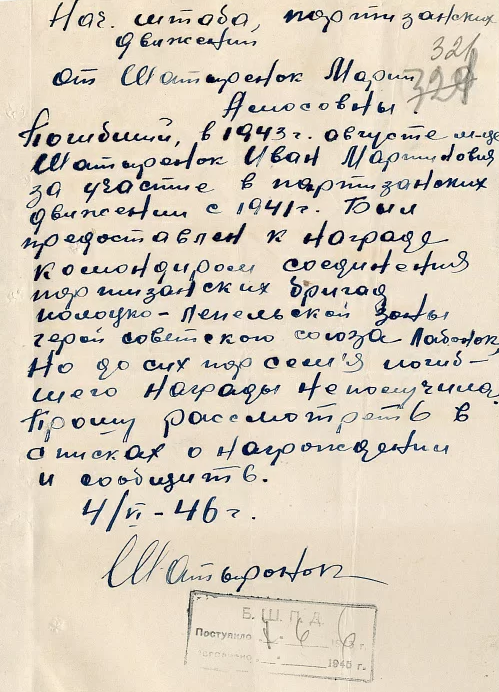 Нач. штаба, партизанских
движении
321
от Шатыренок Марии
Амосовны.
Погибший, в 1943 г. августе м-це
Шатыренок Иван Мартинович
за участие в партизанских
движении с 1941 г. Был
предоставлен к награде
командиром соединения
партизанских бригад
полоцко-Лепельской зоны
герой советского союза Лабонок,
Но до сих пор сем'я погиб-
шего награды не получила.
Прошу рассмотреть в
списках о награждении
и сообщить.
4/VI-46 г.
Шатыренок
Б. Ш. П. Д.
Поступило 6
1945 г.